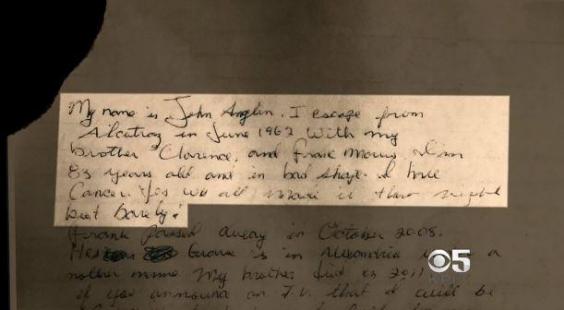 My name is John Anglin. I escape from
Alcatraz in June 1962 with my
brother Clarence, and Frank Morris. I'm
83 years old and in bad shape. I have
Cancer. Yes we all made it that night
but barely!
Frank passed away in October 2008.
His Grave is in Alexandria a
nother name. My brother died in 2011
if you announce on T.V. that I will be
5